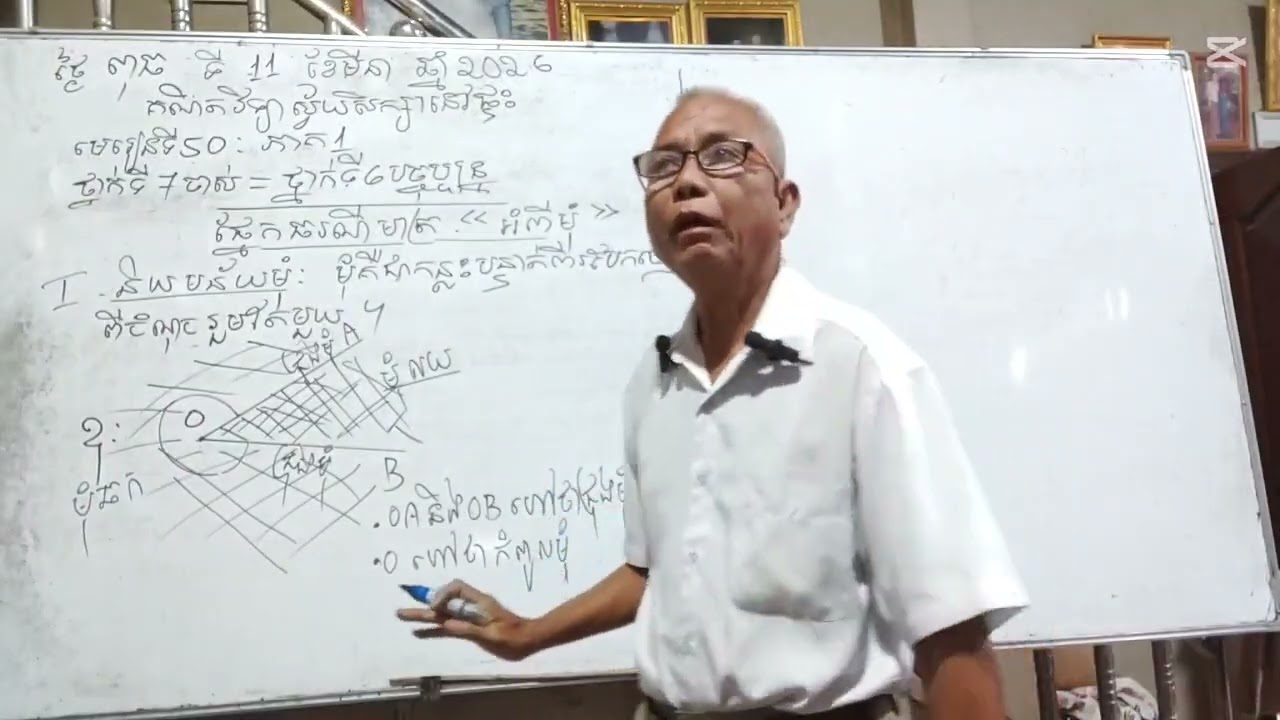 ថ្ងៃ ពុធ ទី 11 ខែមីនា ឆ្នាំ ២០២៦
គណិតវិទ្យា ស្វ័យសិក្សានៅផ្ទះ
មេរៀនទី50: ភាគ1
ថ្នាក់ទី 7 ចាស់ = ថ្នាក់ទី៦បច្ចុប្បន្ន
ផ្នែកធរណីមាត្រ «អំពីមុំ»
I. និយមន័យមុំ: មុំគឺជាកន្លះបន្ទាត់ពីរ
ពីចំណុចរួមតែមួយ ។
ជ្រុងមុំ A
មុំលយ
O
ឧ:
ជ្រុងមុំ
B
មុំធក
•OA និង OB ហៅថាជ្រុងមុំ
•O ហៅថា កំពូលមុំ